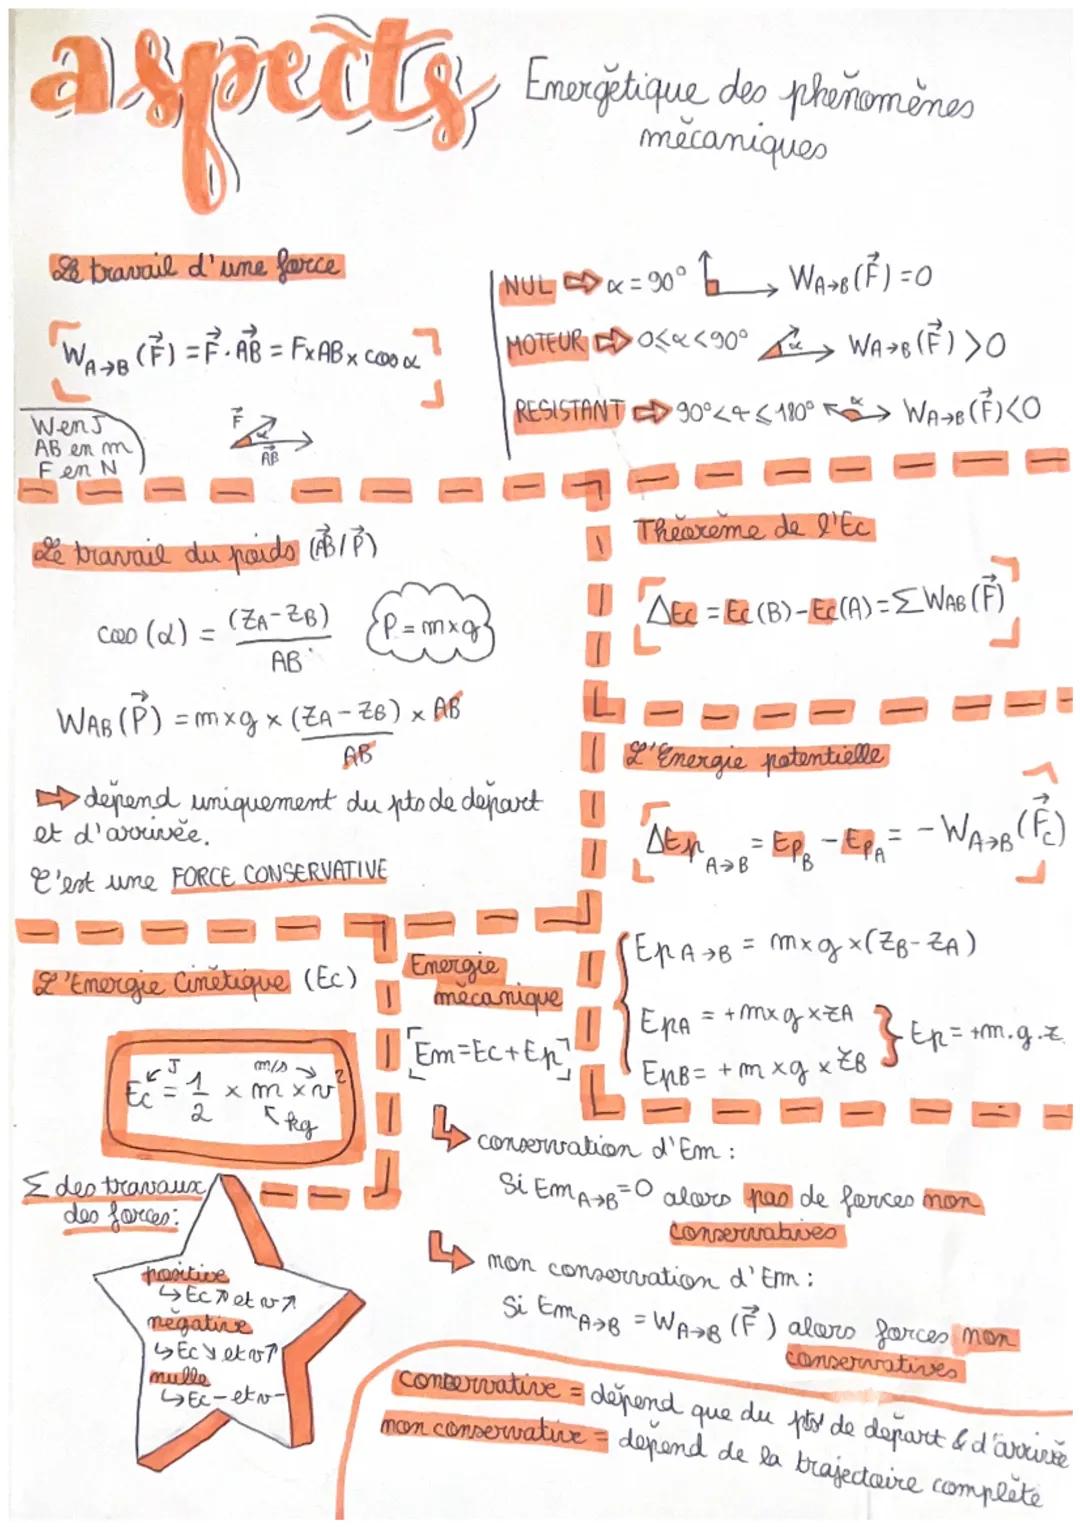 aspects Energětique des phěnomènes
měcaniques
Le travail d'une force
W A→B (F⃗) = F⃗ . AB⃗ = F x AB x cos α
W en J
AB en m
F en N
F⃗
α
AB⃗
NUL ⇨ α = 90° W A→B (F⃗) = 0
MOTEUR ⇨ 0 ≤ α < 90° α W A→B (F⃗) > 0
RESISTANT ⇨ 90° < α ≤ 180° α W A→B (F⃗) < 0
Le travail du poids (AB⃗ / P⃗)
cos (α) = (ZA - ZB) / AB
P = m x g
W AB (P⃗) = m x g x (ZA - ZB) / AB x AB
⇨ děpend uniquement du pts de děpart
et d'arrivěe.
C'est une FORCE CONSERVATIVE
Thěorème de l'Ec
ΔEc = Ec (B) - Ec (A) = Σ W AB (F⃗)
L'Energie potentielle
ΔEp A→B = Ep B - Ep A = - W A→B (F⃗c)
Ep A→B = m x g x (ZB - ZA)
EpA = + m x g x ZA
EpB = + m x g x ZB
Ep = + m . g . z
L'Energie Cinětique (Ec)
J m/s
Ec = 1/2 x m x v²
kg
Energie
měcanique
Em = Ec + Ep
conservation d'Em :
Si Em A→B = 0 alors pas de forces non
conservatives
non conservation d'Em :
Si Em A→B = W A→B (F⃗) alors forces non
conservatives
Σ des travaux
des forces :
positive
↳ Ec ↗ et v ↗
něgative
↳ Ec ↘ et v ↗
nulle
↳ Ec - et v -
conservative = děpend que du pts de děpart & d'arrivěe
non conservative = děpend de la trajectoire complète